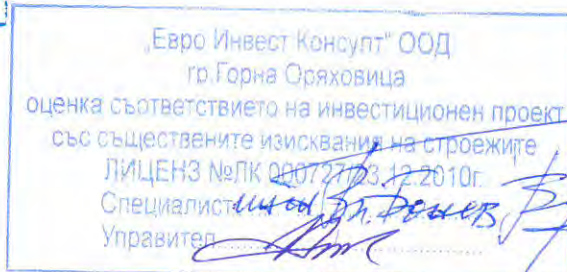 „Евро Инвест Консулт" ООД
гр.Горна Оряховица
оценка съответствието на инвестиционен проект
със съществените изисквания на строежите
ЛИЦЕНЗ №ЛК 000727/23.12.2010г.
Специалист
Управител